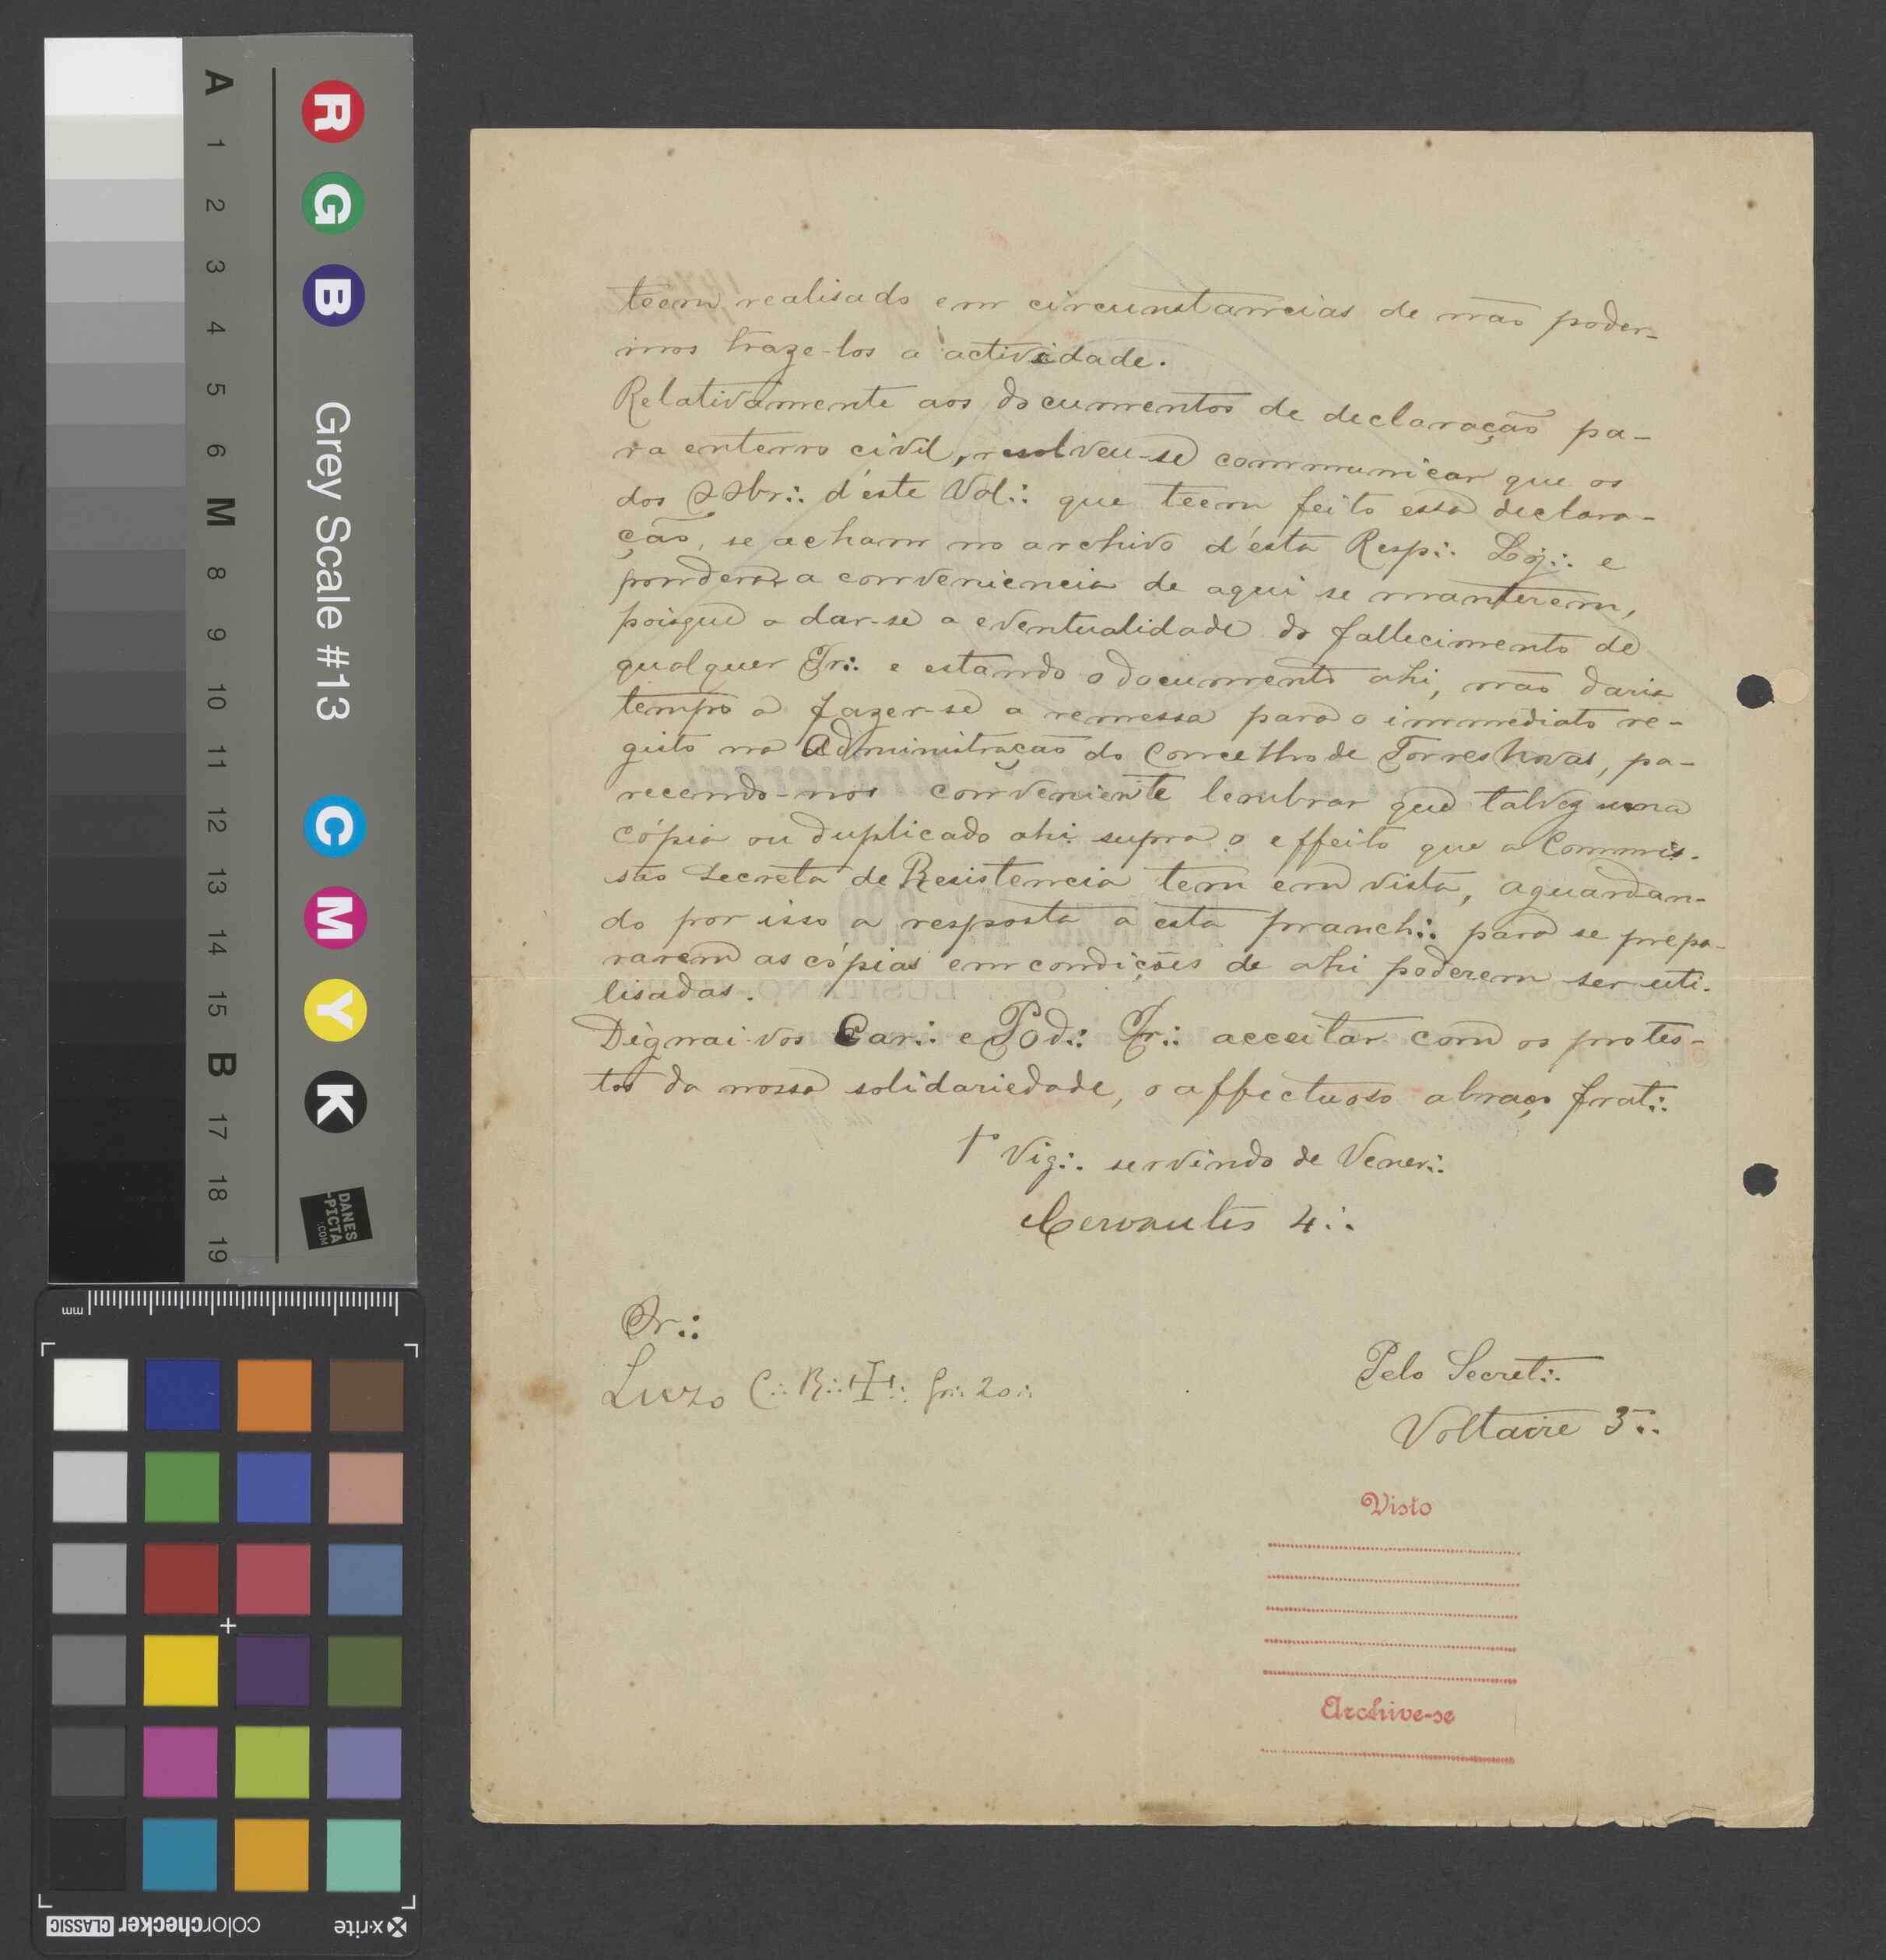 teem realisado em circunstancias de não poder-
mos traze-los a actividade.
Relativamente aos documentos de declaração pa-
ra enterro civil, resolveu-se communicar que os
dos OObr∴ d'este Val∴ que teem feito essa declara-
ção, se acham no archivo d'esta Resp∴ Loj∴ e
pondera a conveniencia de aqui se manterem,
poisque a dar-se a eventualidade do fallecimento de
qualquer Ir∴ e estando o documento ahi, não daria
tempo a fazer-se a remessa para o immediato re-
gisto na Administração do Concelho de Torres Novas, pa-
recendo-nos conveniente lembrar que talvez uma
cópia ou duplicado ahi supra o effeito que a Commis-
são Secreta de Resistencia tem em vista, aguardan-
do por isso a resposta a esta pranch∴ para se prepa-
rarem as cópias em condições de ahi poderem ser uti-
lisadas.
Dignai-vos Car∴ e Pod∴ Ir∴ acceitar com os protes-
tos da nossa solidariedade, o affectuoso abraço frat∴
1º Vig∴ servindo de Vener∴
Cervantes 4∴
Or∴
Luzo C∴ R∴ ✠∴ gr∴ 20∴
Pelo Secret∴
Voltaire 3∴
Visto
Archive-se
A 1 2 3 4 5 6 M 8 9 10 11 12 13 14 15 B 17 18 19
R G B Grey Scale #13 C M Y K
DANES
-PICTA
.COM
mm
x·rite
colorchecker CLASSIC